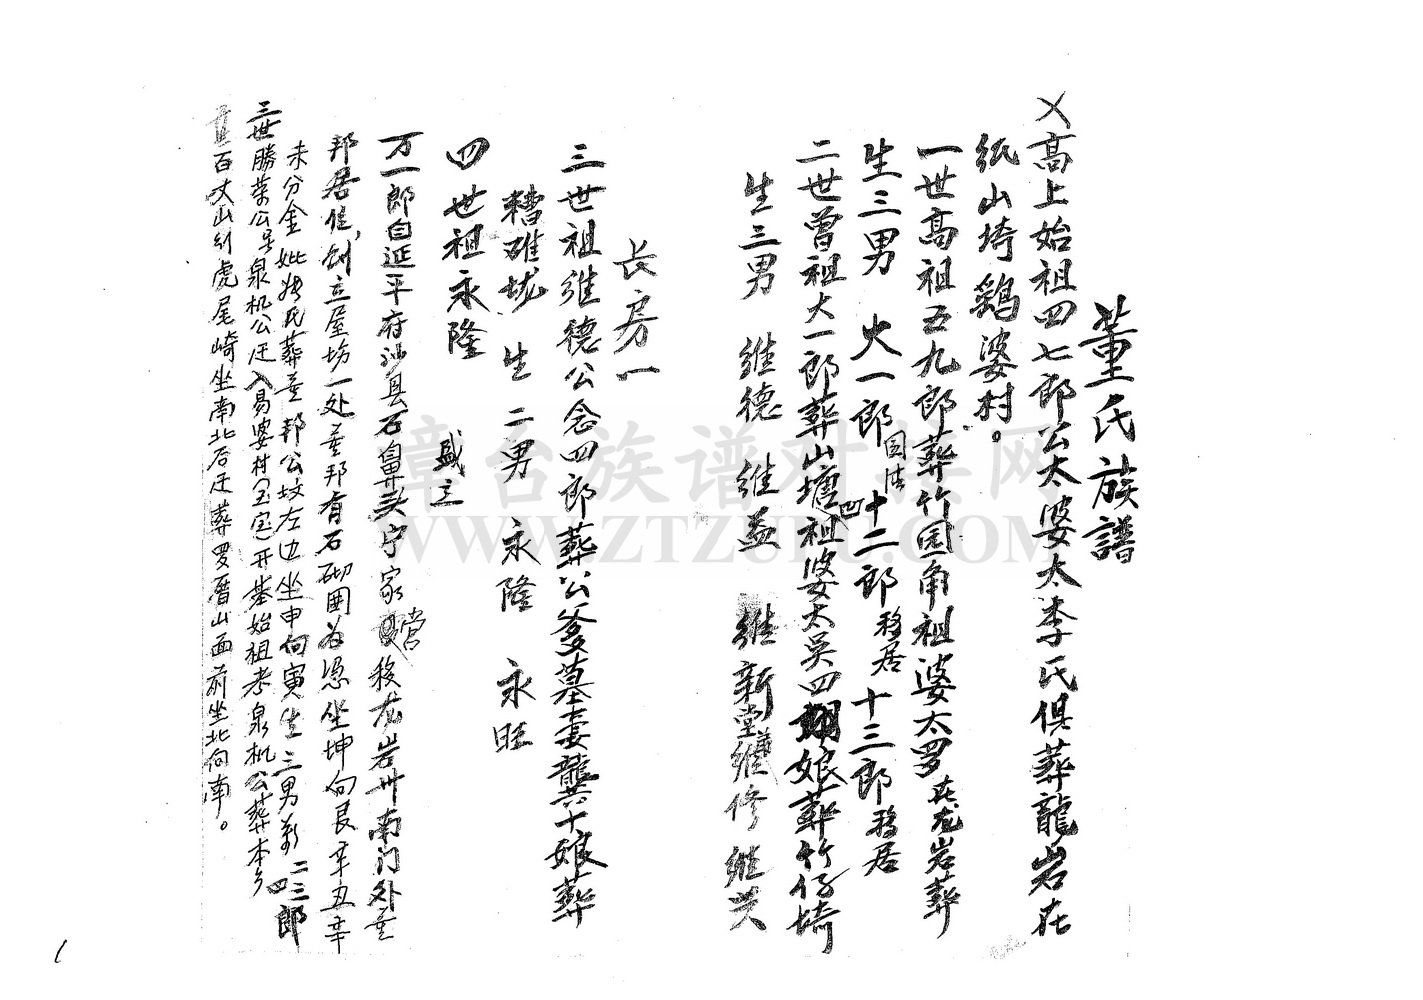 董氏族譜
乂高上始祖四七郎公太婆太李氏俱葬龍岩在
纸山埼鷄婆村。
一世高祖五九郎葬竹园角祖婆太罗在龙岩葬
生三男 大一郎 固结 十二郎移居 十三郎移居
二世曾祖大一郎葬山塘凹祖婆太吴四娘葬竹仔埼
生三男 维德 维益 维新 维修 维
长房一
三世祖维德公念四郎葬公爹墓妻龔六十娘葬
糟碓垅 生二男 永隆 永旺
四世祖永隆 盛三
万一郎自延平府沙县石鼻头宁家营移龙岩州南门外董
邦居住,创立屋场一处董邦有石砌围为凭坐坤向艮辛丑辛
未分金妣 氏葬董邦公坟左边坐申向寅生三男 二三四郎
三世勝荣公号泉机公迁入易婆村 开基始祖考泉机公葬本乡
百丈山 虎尾崎坐南北后迁葬罗厝山面前坐北向南。
章台族谱对接网
WWW.ZTZUPU.COM
1